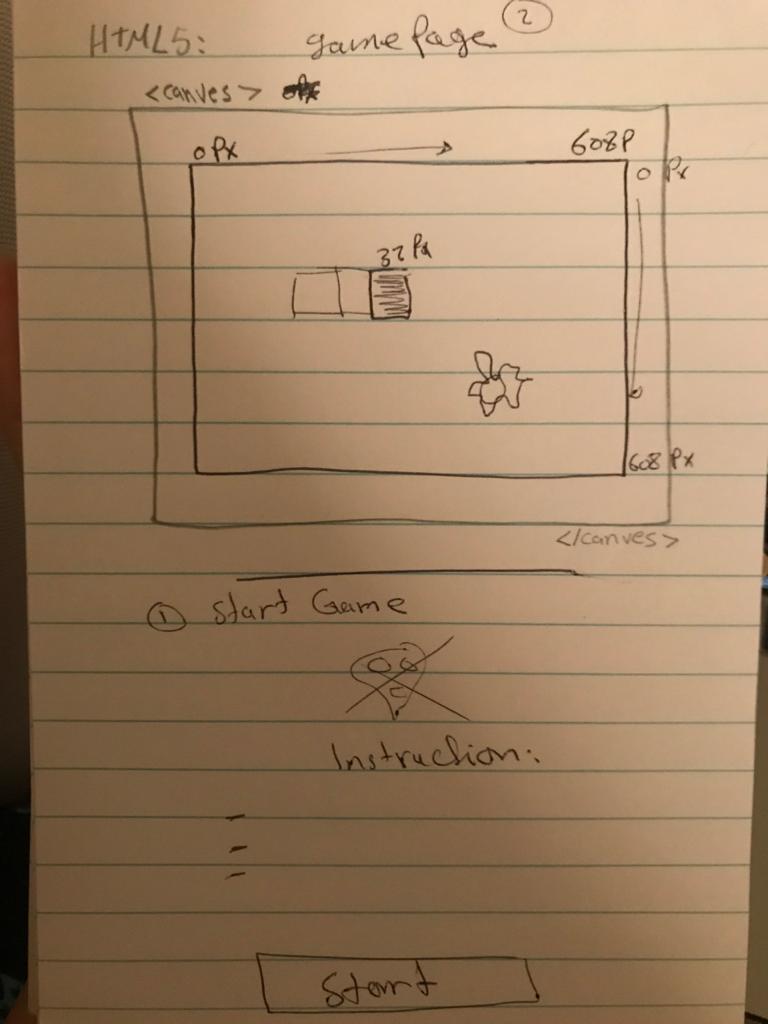 HTML5: game Page 2
<canves>
0 Px 608P
0 Px
32 Px
608 Px
</canves>
1 Start Game
Instruction:
Start